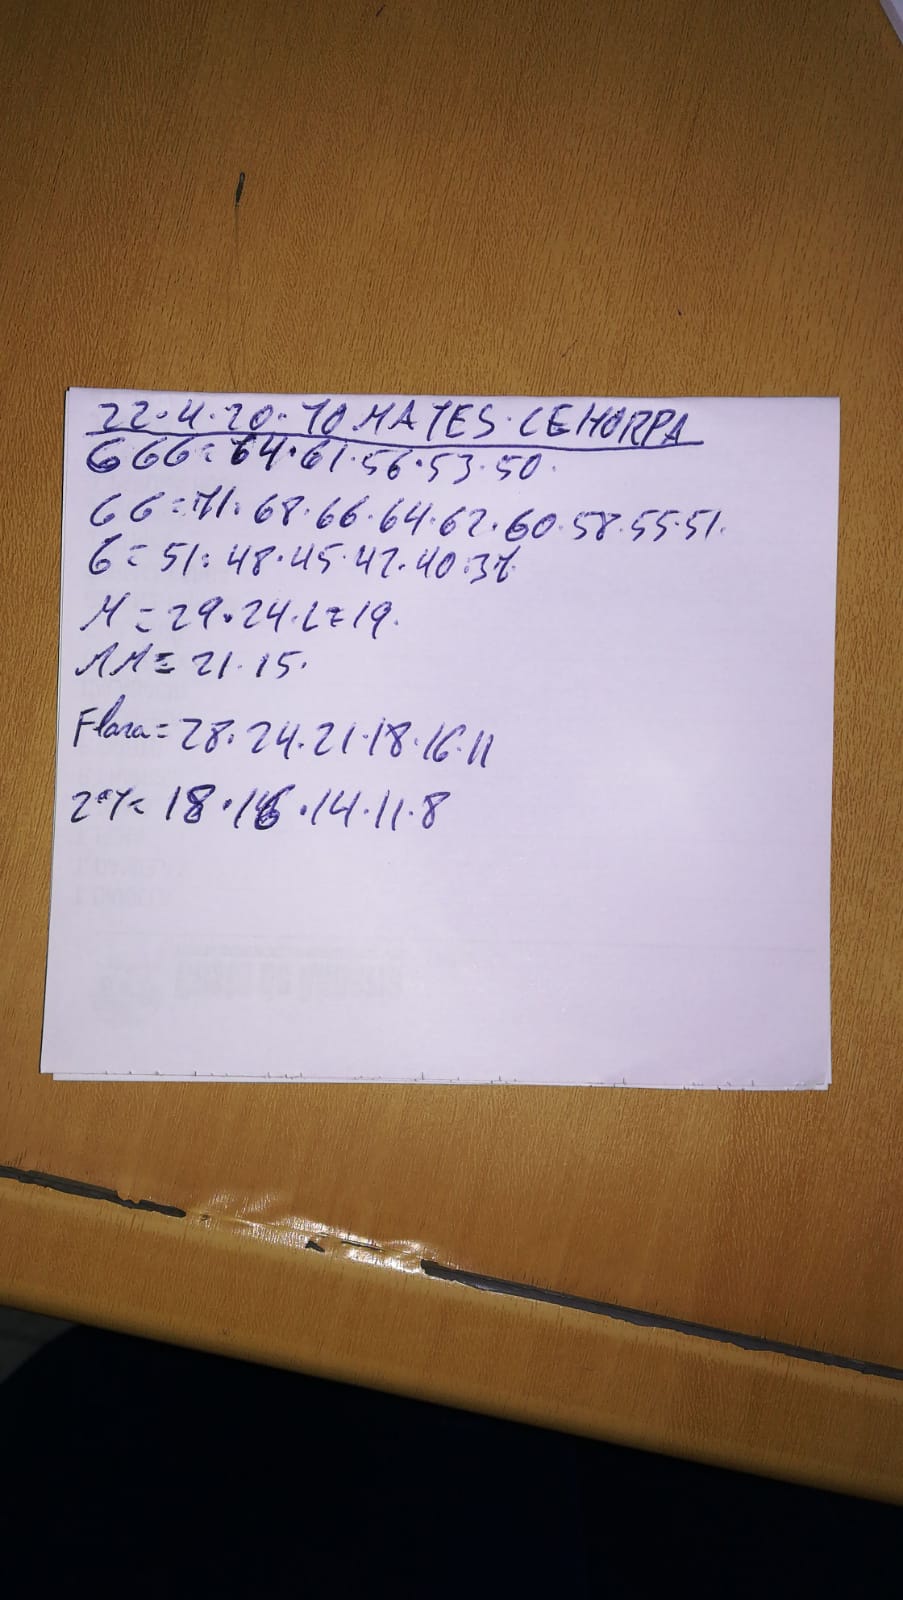 22.4.20. TOMATES. CEHORPA
GGG= 64.61.56.53.50.
GG=71.68.66.64.62.60.58.55.51.
G= 51.48.45.42.40.37
M=29.24.L=19.
MM= 21.15.
Flora=28.24.21.18.16.11
2ªY= 18.16.14.11.8